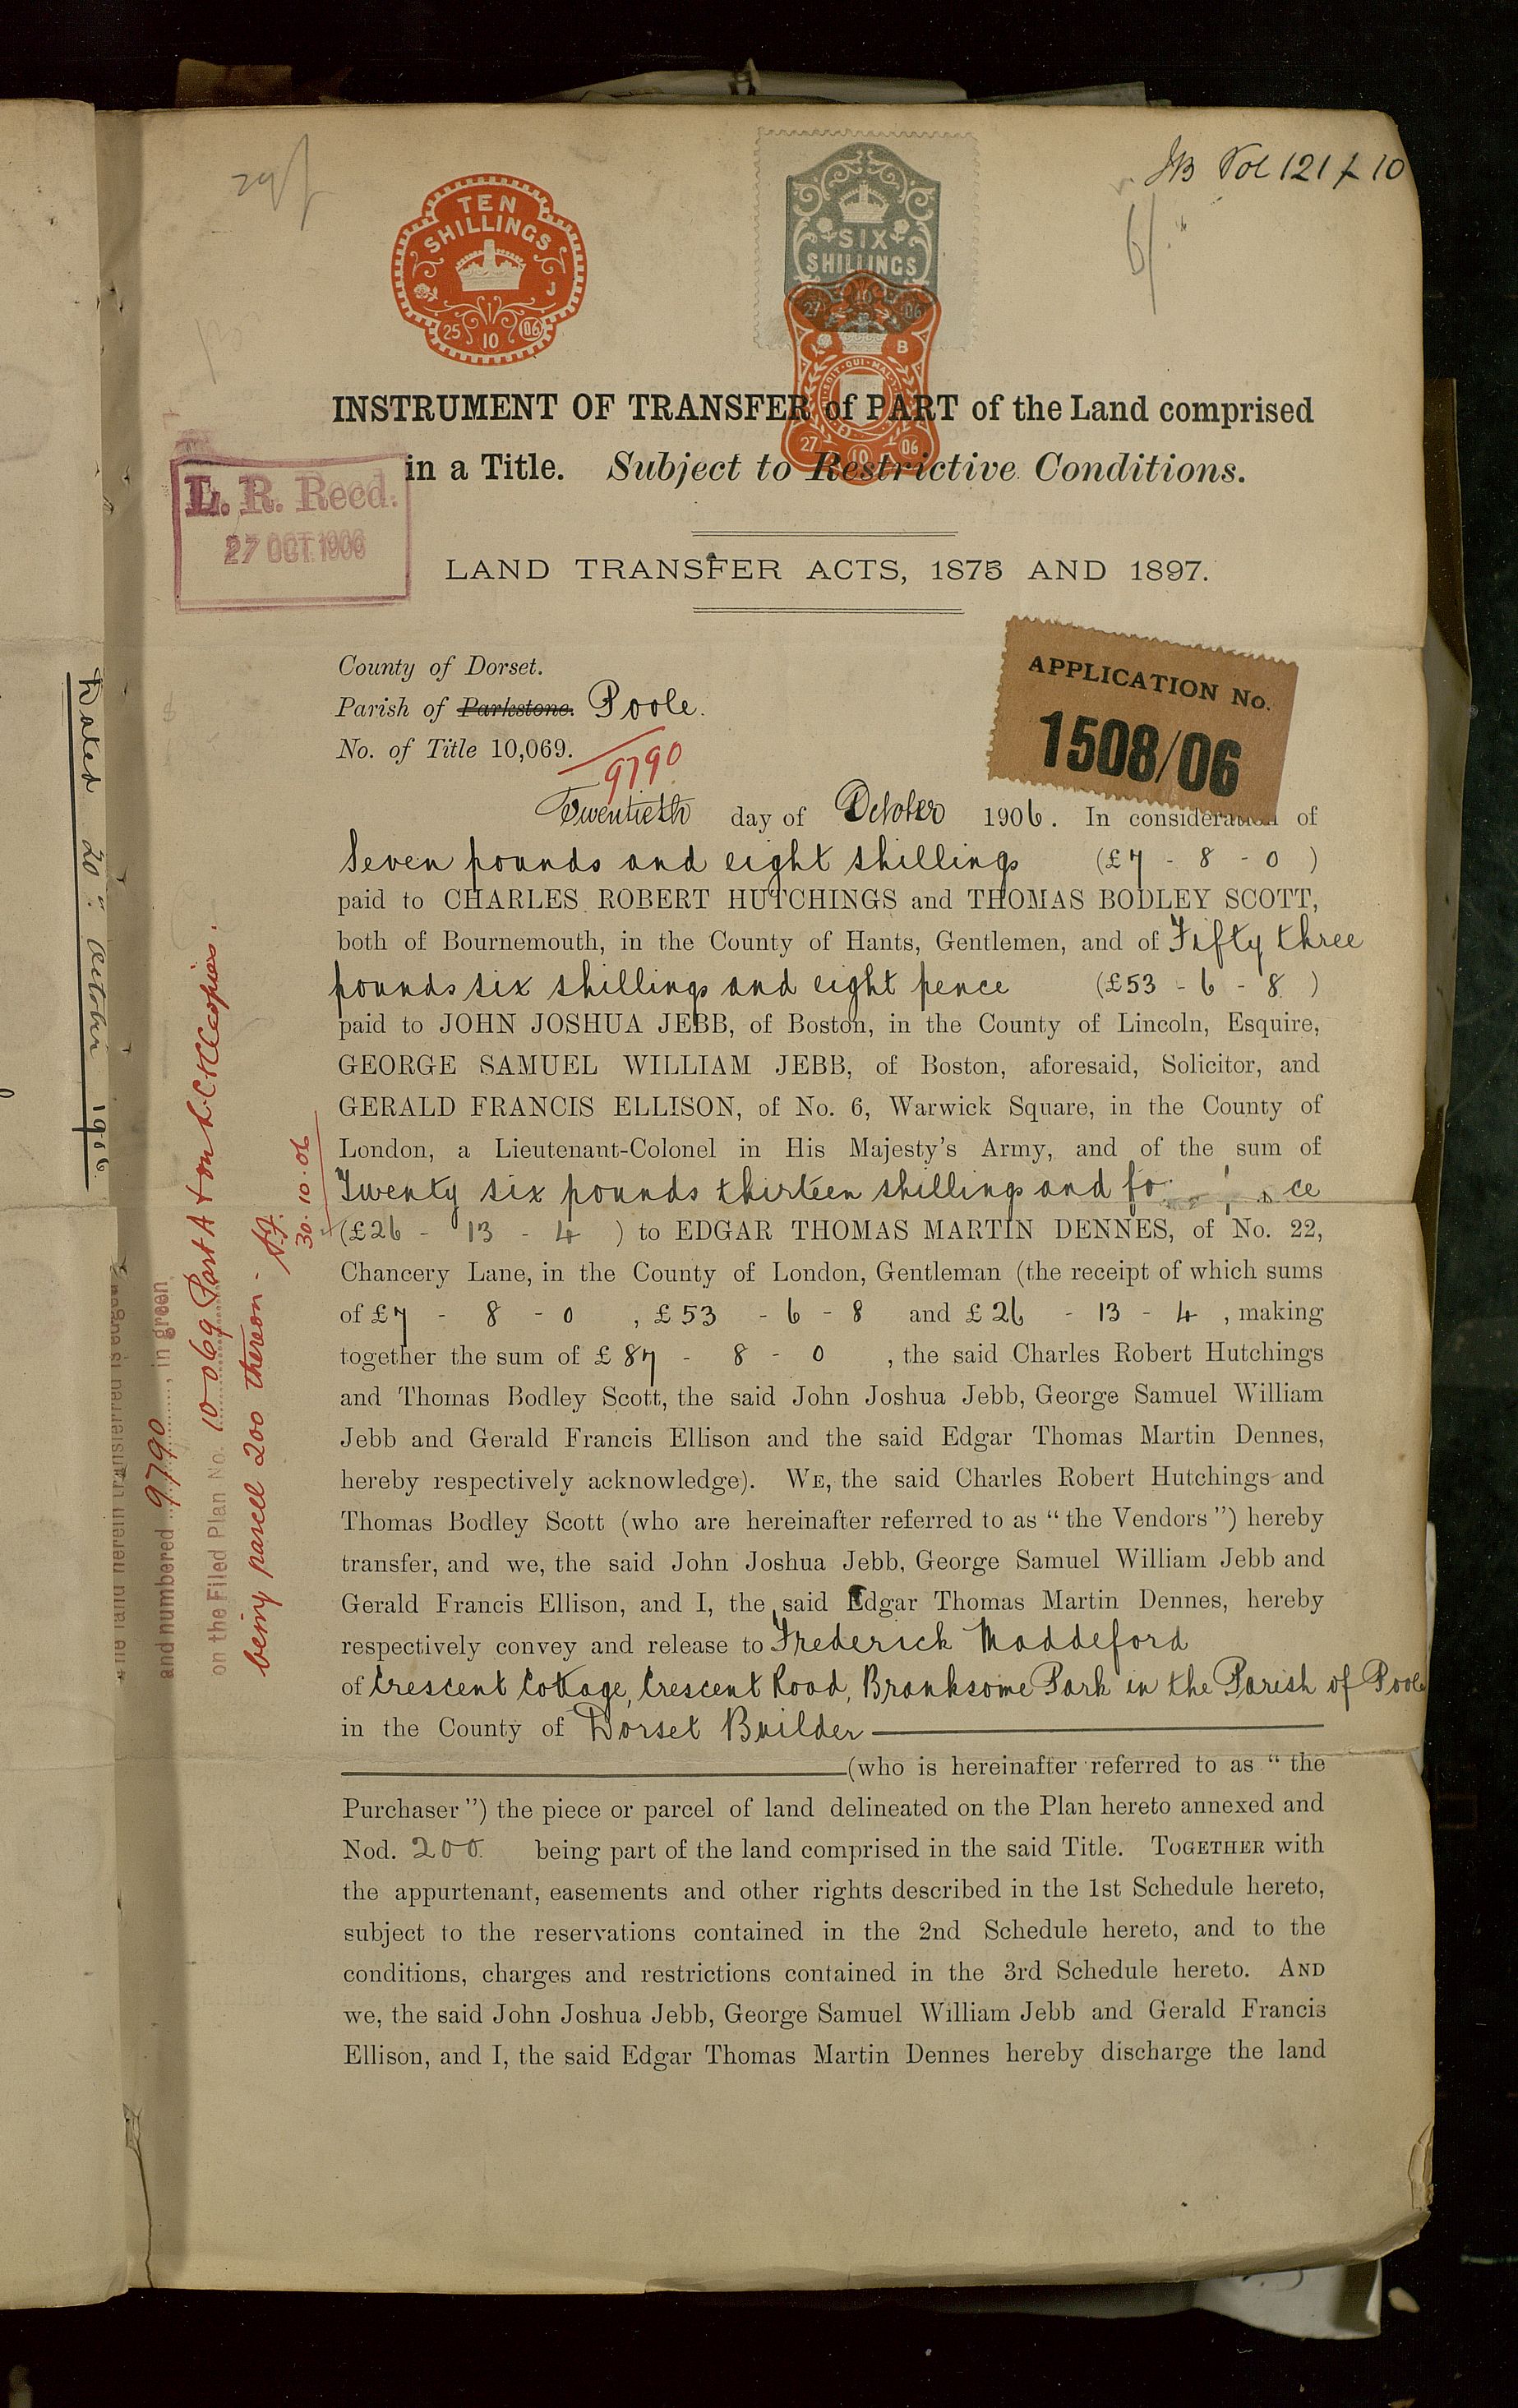 JB Vol 121 f 10
6/.
TEN
SHILLINGS
J
25 10 06
SIX
SHILLINGS
27 10 06
B
SOIT · QUI · MAL
27 10 06
INSTRUMENT OF TRANSFER of PART of the Land comprised
in a Title. Subject to Restrictive Conditions.
L. R. Recd.
27 OCT. 1906
LAND TRANSFER ACTS, 1875 AND 1897.
APPLICATION No.
1508/06
County of Dorset.
Parish of Parkstone. Poole.
No. of Title 10,069.
9790
Twentieth day of October 1906. In consideration of
Seven pounds and eight shillings (£7 - 8 - 0 )
paid to CHARLES ROBERT HUTCHINGS and THOMAS BODLEY SCOTT,
both of Bournemouth, in the County of Hants, Gentlemen, and of Fifty three
pounds six shillings and eight pence (£53 - 6 - 8 )
paid to JOHN JOSHUA JEBB, of Boston, in the County of Lincoln, Esquire,
GEORGE SAMUEL WILLIAM JEBB, of Boston, aforesaid, Solicitor, and
GERALD FRANCIS ELLISON, of No. 6, Warwick Square, in the County of
London, a Lieutenant-Colonel in His Majesty's Army, and of the sum of
Twenty six pounds thirteen shillings and
(£26 - 13 - 4 ) to EDGAR THOMAS MARTIN DENNES, of No. 22,
Chancery Lane, in the County of London, Gentleman (the receipt of which sums
of £7 - 8 - 0 , £53 - 6 - 8 and £26 - 13 - 4 , making
together the sum of £87 - 8 - 0 , the said Charles Robert Hutchings
and Thomas Bodley Scott, the said John Joshua Jebb, George Samuel William
Jebb and Gerald Francis Ellison and the said Edgar Thomas Martin Dennes,
hereby respectively acknowledge). WE, the said Charles Robert Hutchings and
Thomas Bodley Scott (who are hereinafter referred to as "the Vendors") hereby
transfer, and we, the said John Joshua Jebb, George Samuel William Jebb and
Gerald Francis Ellison, and I, the said Edgar Thomas Martin Dennes, hereby
respectively convey and release to Frederick Maddeford
of Crescent Cottage, Crescent Road, Branksome Park in the Parish of Poole
in the County of Dorset Builder
(who is hereinafter referred to as "the
Purchaser") the piece or parcel of land delineated on the Plan hereto annexed and
Nod. 200. being part of the land comprised in the said Title. TOGETHER with
the appurtenant, easements and other rights described in the 1st Schedule hereto,
subject to the reservations contained in the 2nd Schedule hereto, and to the
conditions, charges and restrictions contained in the 3rd Schedule hereto. AND
we, the said John Joshua Jebb, George Samuel William Jebb and Gerald Francis
Ellison, and I, the said Edgar Thomas Martin Dennes hereby discharge the land
Dated 20th October 1906
The land herein transferred is edged
and numbered 9790, in green
on the Filed Plan No. 10069 Part A
being parcel 200 thereon.
30.10.06